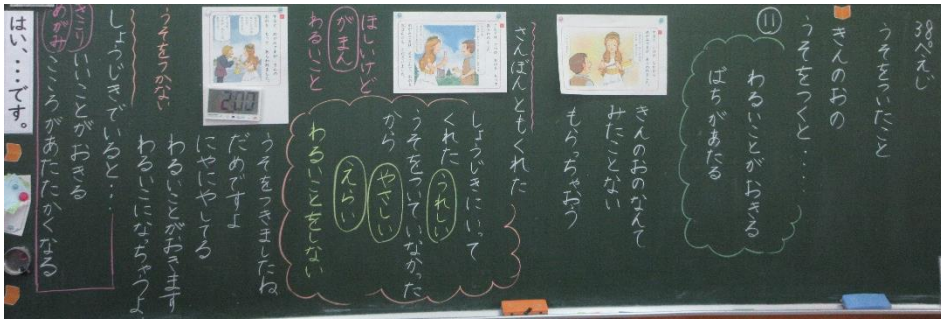 38ぺえじ
うそをついたこと
⑪
きんのおの
うそをつくと・・・
わるいことがおきる
ばちがあたる
きんのおのなんて
みたことない
もらっちゃおう
さんぼんともくれた
しょうじきにいって
くれた うれしい
うそをついていなかった
から やさしい
えらい
わるいことをしない
ほしいけど
がまん
わるいこと
2:00
うそをつきましたね
だめですよ
にやにやしてる
わるいことがおきます
わるいこになっちゃうよ
うそをつかない
しょうじきでいると・・・
いいことがおきる
こころがあたたかくなる
きこり
めがみ
はい、・・・です。